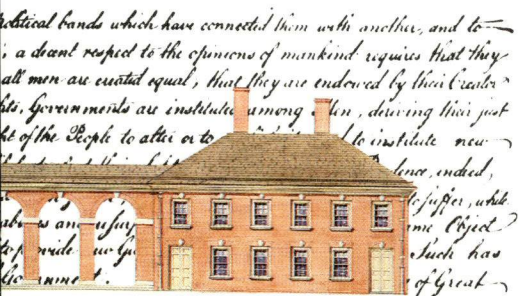 political bands which have connected them with another, and to
, a decent respect to the opinions of mankind requires that they
all men are created equal, that they are endowed by their Creator
hts, Governments are instituted among Men, deriving their just
ht of the People to alter or to to institute new
dence, indeed,
to suffer, while
abuses and usurp me Object
to provide new Gu Such has
Government. of Great